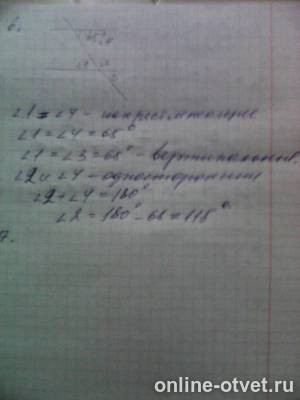 6.
∠1 = ∠4 - накрест лежащие
∠1 = ∠4 = 65°
∠1 = ∠3 = 65° - вертикальные.
∠2 и ∠4 - односторонние
∠2 + ∠4 = 180°
∠2 = 180° - 65 = 115°
7.
online-otvet.ru